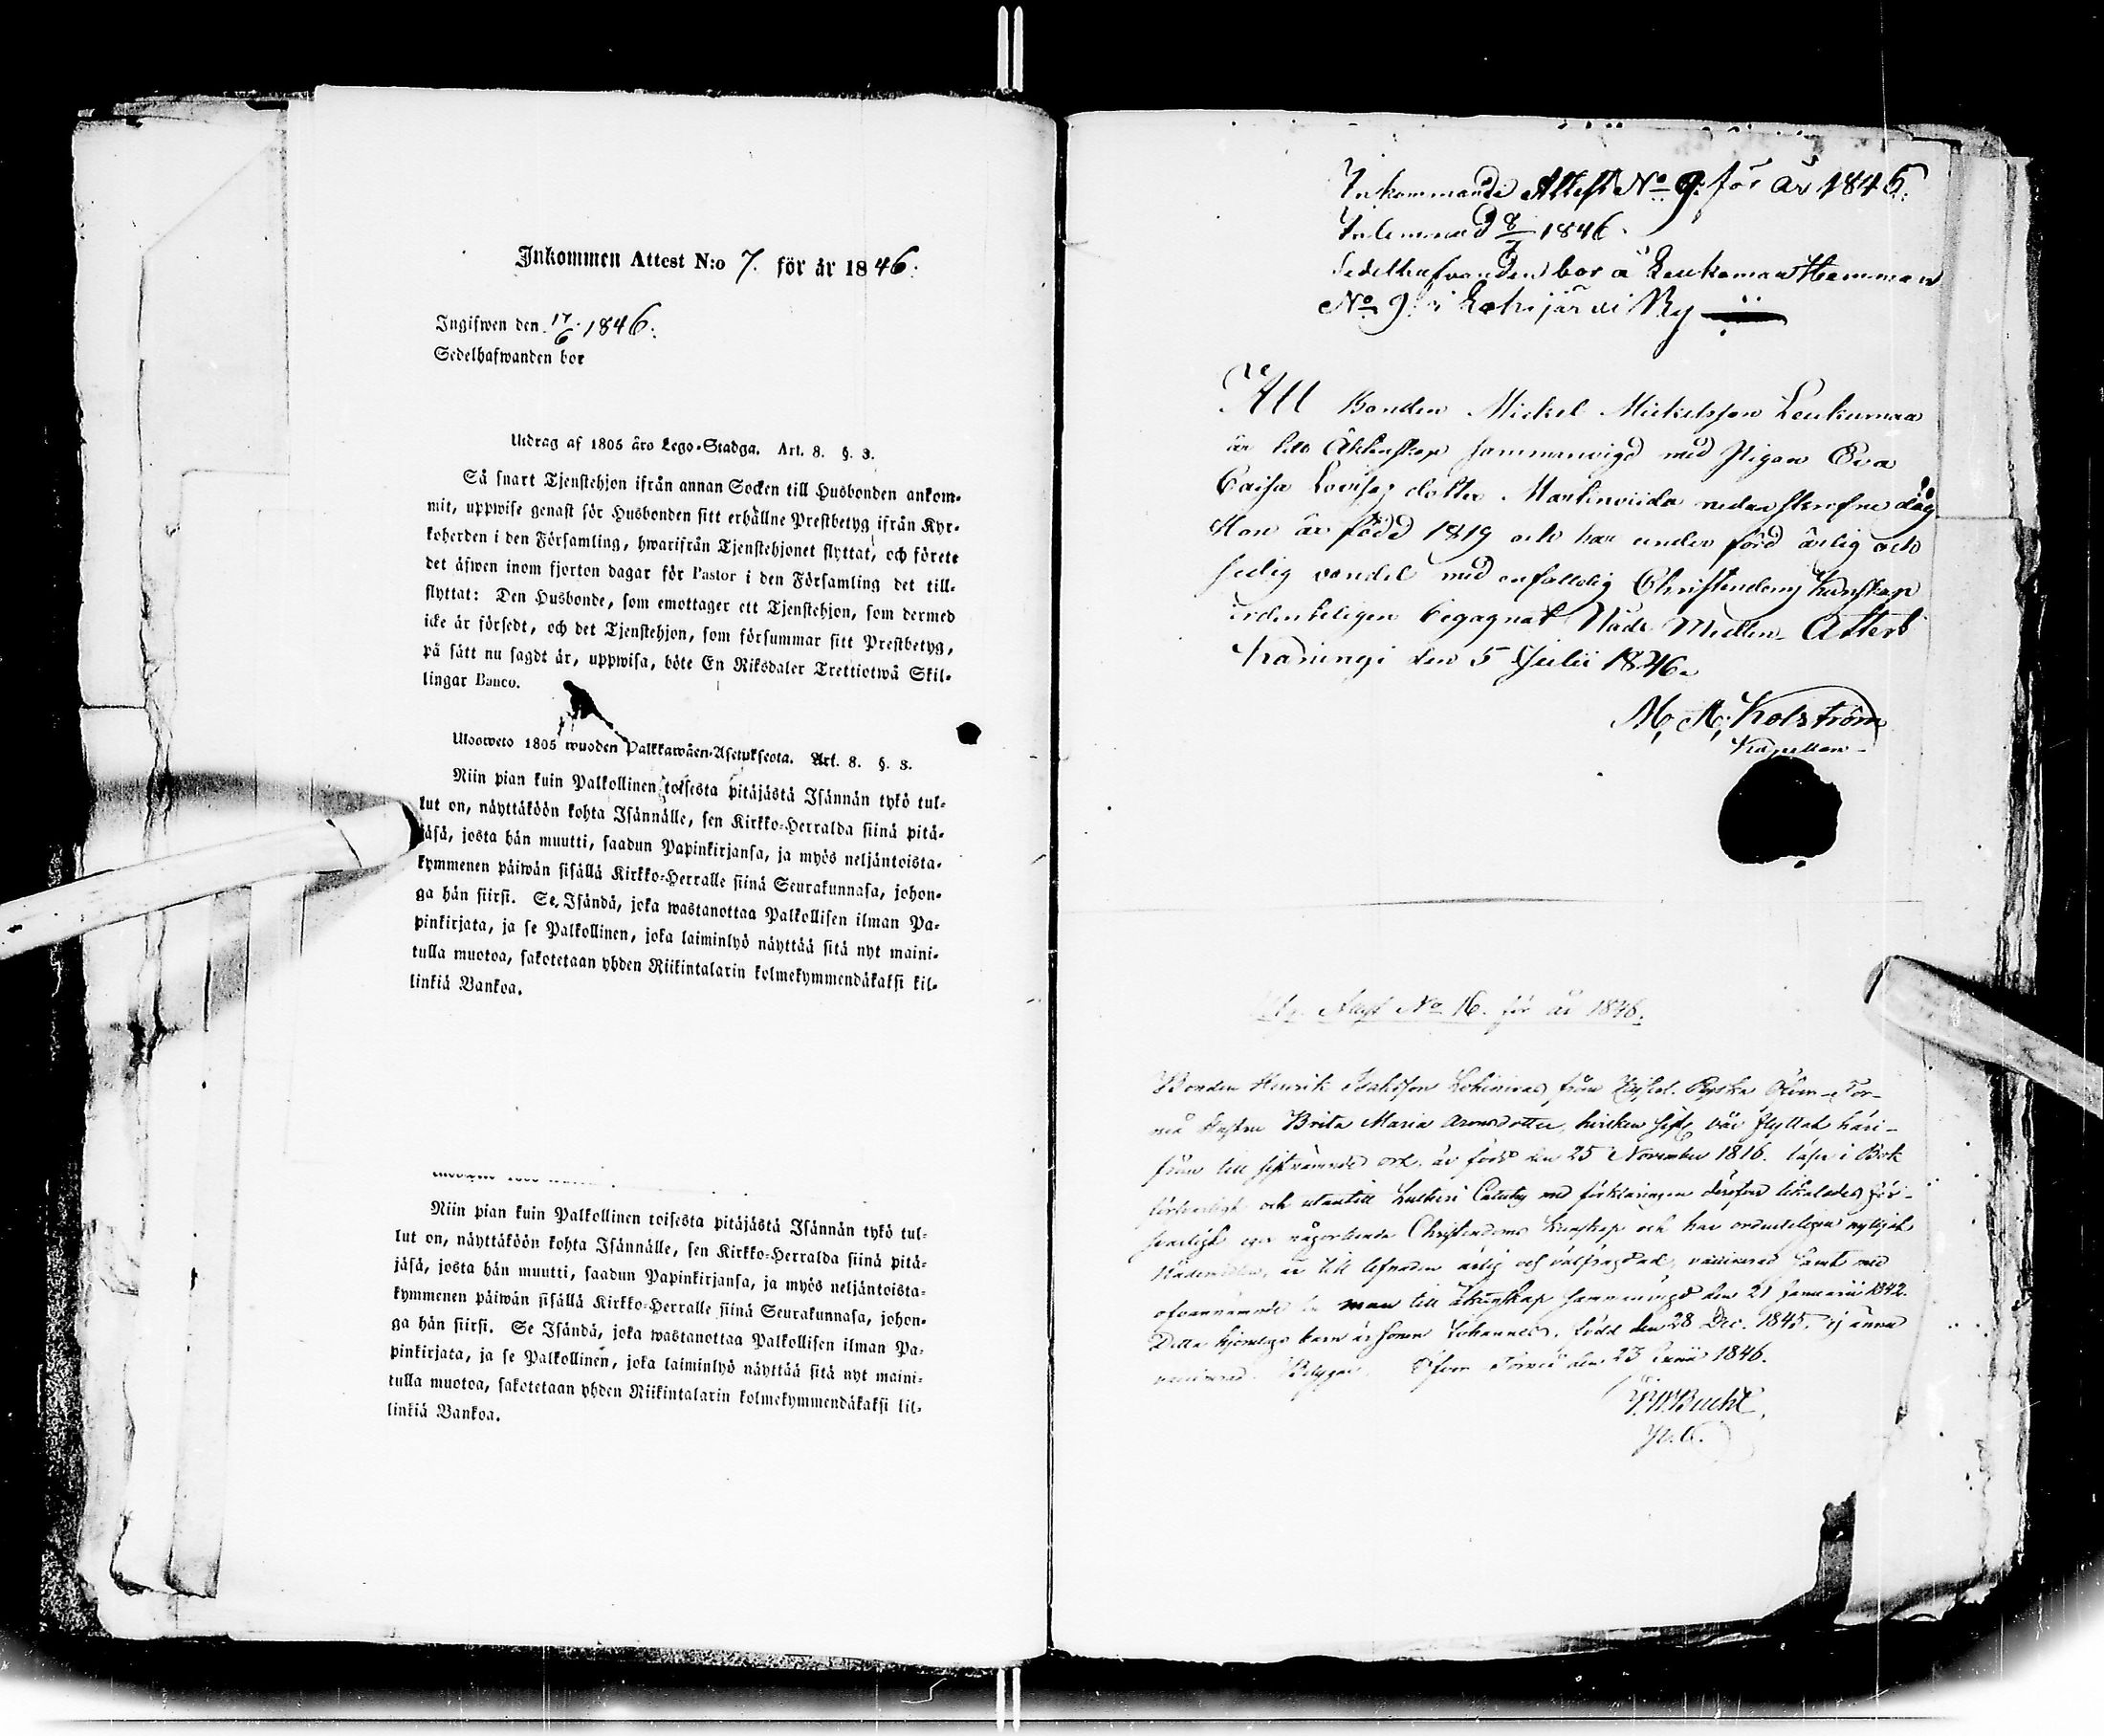 Inkommen Attest N:o 7. för år 1846.
Ingifwen den 17/6 1846.
Sedelhafwanden bor
Utdrag af 1805 års Lego-Stadga. Art. 8. §. 3.
Så snart Tjenstehjon ifrån annan Socken till Husbonden ankom-
mit, uppwise genast för Husbonden sitt erhållne Prestbetyg ifrån Kyr-
koherden i den Församling, hwarifrån Tjenstehjonet flyttat, och förete
det äfwen inom fjorton dagar för Pastor i den Församling det till-
flyttat: Den Husbonde, som emottager ett Tjenstehjon, som dermed
icke är försedt, och det Tjenstehjon, som försummar sitt Prestbetyg,
på sätt nu sagdt är, uppwisa, böte En Riksdaler Trettiotwå Skil-
lingar Banco.
Ulosweto 1805 wuoden Palkkawäen-Asetuksesta. Art. 8. §. 3.
Niin pian kuin Palkollinen toisesta pitäjästä Isännän tykö tul-
lut on, näyttäköön kohta Isännälle, sen Kirkko-Herralda siinä pitä-
jäsä, josta hän muutti, saadun Papinkirjansa, ja myös neljäntoista-
kymmenen päiwän sisällä Kirkko-Herralle siinä Seurakunnasa, johon-
ga hän siirsi. Se, Isändä, joka wastanottaa Palkollisen ilman Pa-
pinkirjata, ja se Palkollinen, joka laiminlyö näyttää sitä nyt maini-
tulla muotoa, sakotetaan yhden Riikintalarin kolmekymmendäkaksi kil-
linkiä Bankoa.
Niin pian kuin Palkollinen toisesta pitäjästä Isännän tykö tul-
lut on, näyttäköön kohta Isännälle, sen Kirkko-Herralda siinä pitä-
jäsä, josta hän muutti, saadun Papinkirjansa, ja myös neljäntoista-
kymmenen päiwän sisällä Kirkko-Herralle siinä Seurakunnasa, johon-
ga hän siirsi. Se Isändä, joka wastanottaa Palkollisen ilman Pa-
pinkirjata, ja se Palkollinen, joka laiminlyö näyttää sitä nyt maini-
tulla muotoa, sakotetaan yhden Riikintalarin kolmekymmendäkaksi kil-
linkiä Bankoa.
Inkommande Attest No 9. för år 1846.
Inlemnad 8/7 1846.
Sedelhafvanden bor å Leukumaa Hemman
No 9. i By
Att Bonden Mickel Mickelsson Leukumaa
är till Äktenskap sammanvigd med Pigan Eva
Caisa Lovisa dotter Martinviida nedanskrefne dag
Hon är född 1819 och har under förd ärlig och
sedlig vandel med enfaldig Christendoms Kunskap
ordenteligen begagnat Nåde Medlen. Attest.
Karungi den 5 Julii 1846.
M. A. Kolström
Kapellan
Attest No 16. för år 1846.
Bonden Henrik från Ryska Öfver-Tor-
neå Hustru Brita Maria Aronsdotter, hvilken sist var flyttad häri-
från till sistnämnde ort, är född den 25 November 1816. läser i Bok
och utantill Lutheri Catechs med förklaringen
eger någorlunda Christendoms kunskap och har ordenteligen nyttjat
Nademedlen, är till lefnaden ärlig och välfrägdad, vaccinerad samt med
ofvannämnde man till äktenskap sammanvigd den 21 Januarii 1842.
Detta barn är sonen Johannes, född den 28 Dec. 1845, ej ännu
vaccinerad. Betygar. Öfver Torneå den 23 Junii 1846.